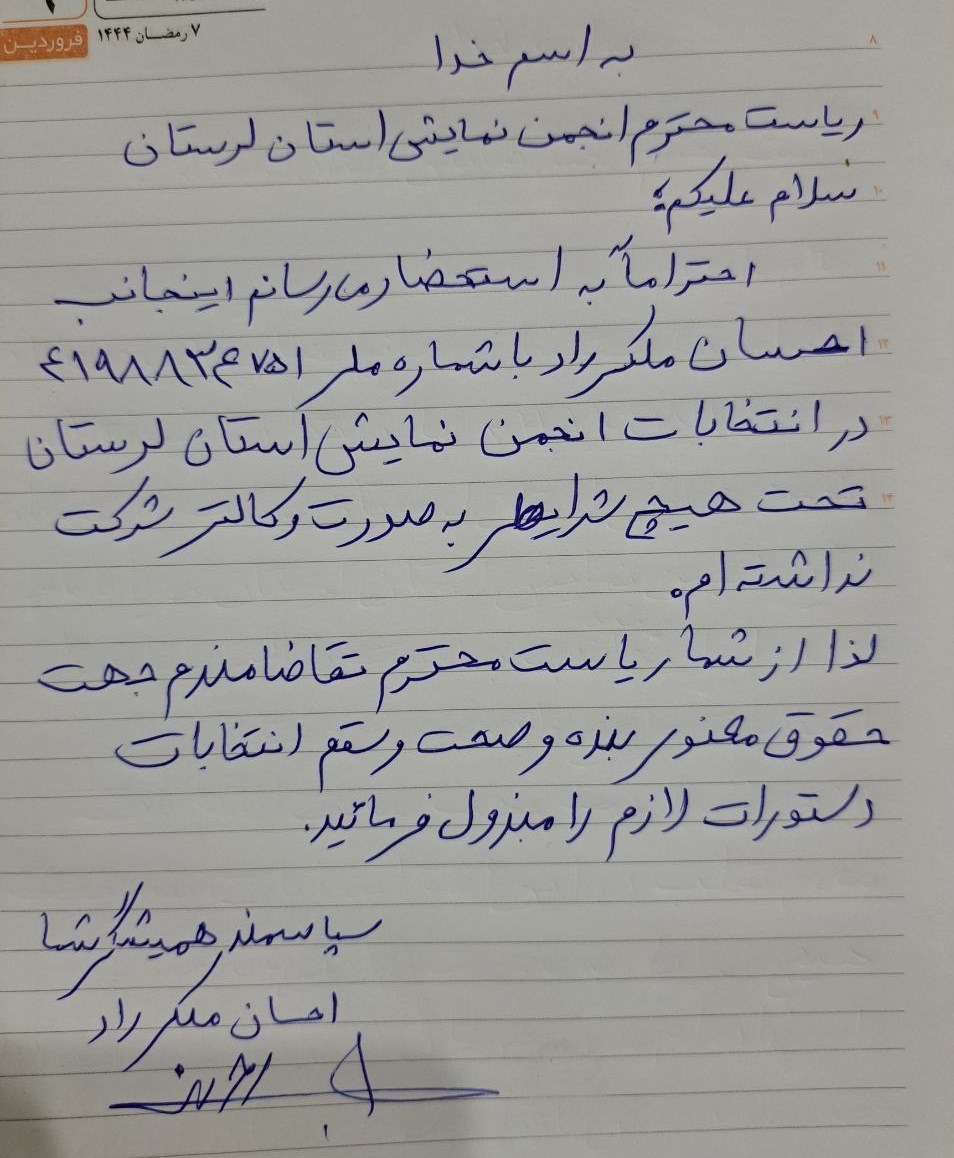 ۷ رمضان ۱۴۴۴
فروردین
۸
به اسم خدا
۹
ریاست محترم انجمن نمایشی استان لرستان
۱۰
سلام علیکم؛
۱۱
احتراماً به استحضار می رسانم اینجانب
۱۲
احسان ملکی راد با شماره ملی ۴۱۹۸۸۳۴۷۵۱
۱۳
در انتخابات انجمن نمایش استان لرستان
۱۴
تحت هیچ شرایطی به صورت وکالتی شرکت
نداشته ام.
لذا از شما ریاست محترم تقاضامندم جهت
حقوق معنوی بنده و صحت و سقم انتخابات
دستورات لازم را مبذول فرمائید.
سپاسمند همیشگی شما
احسان ملکی راد